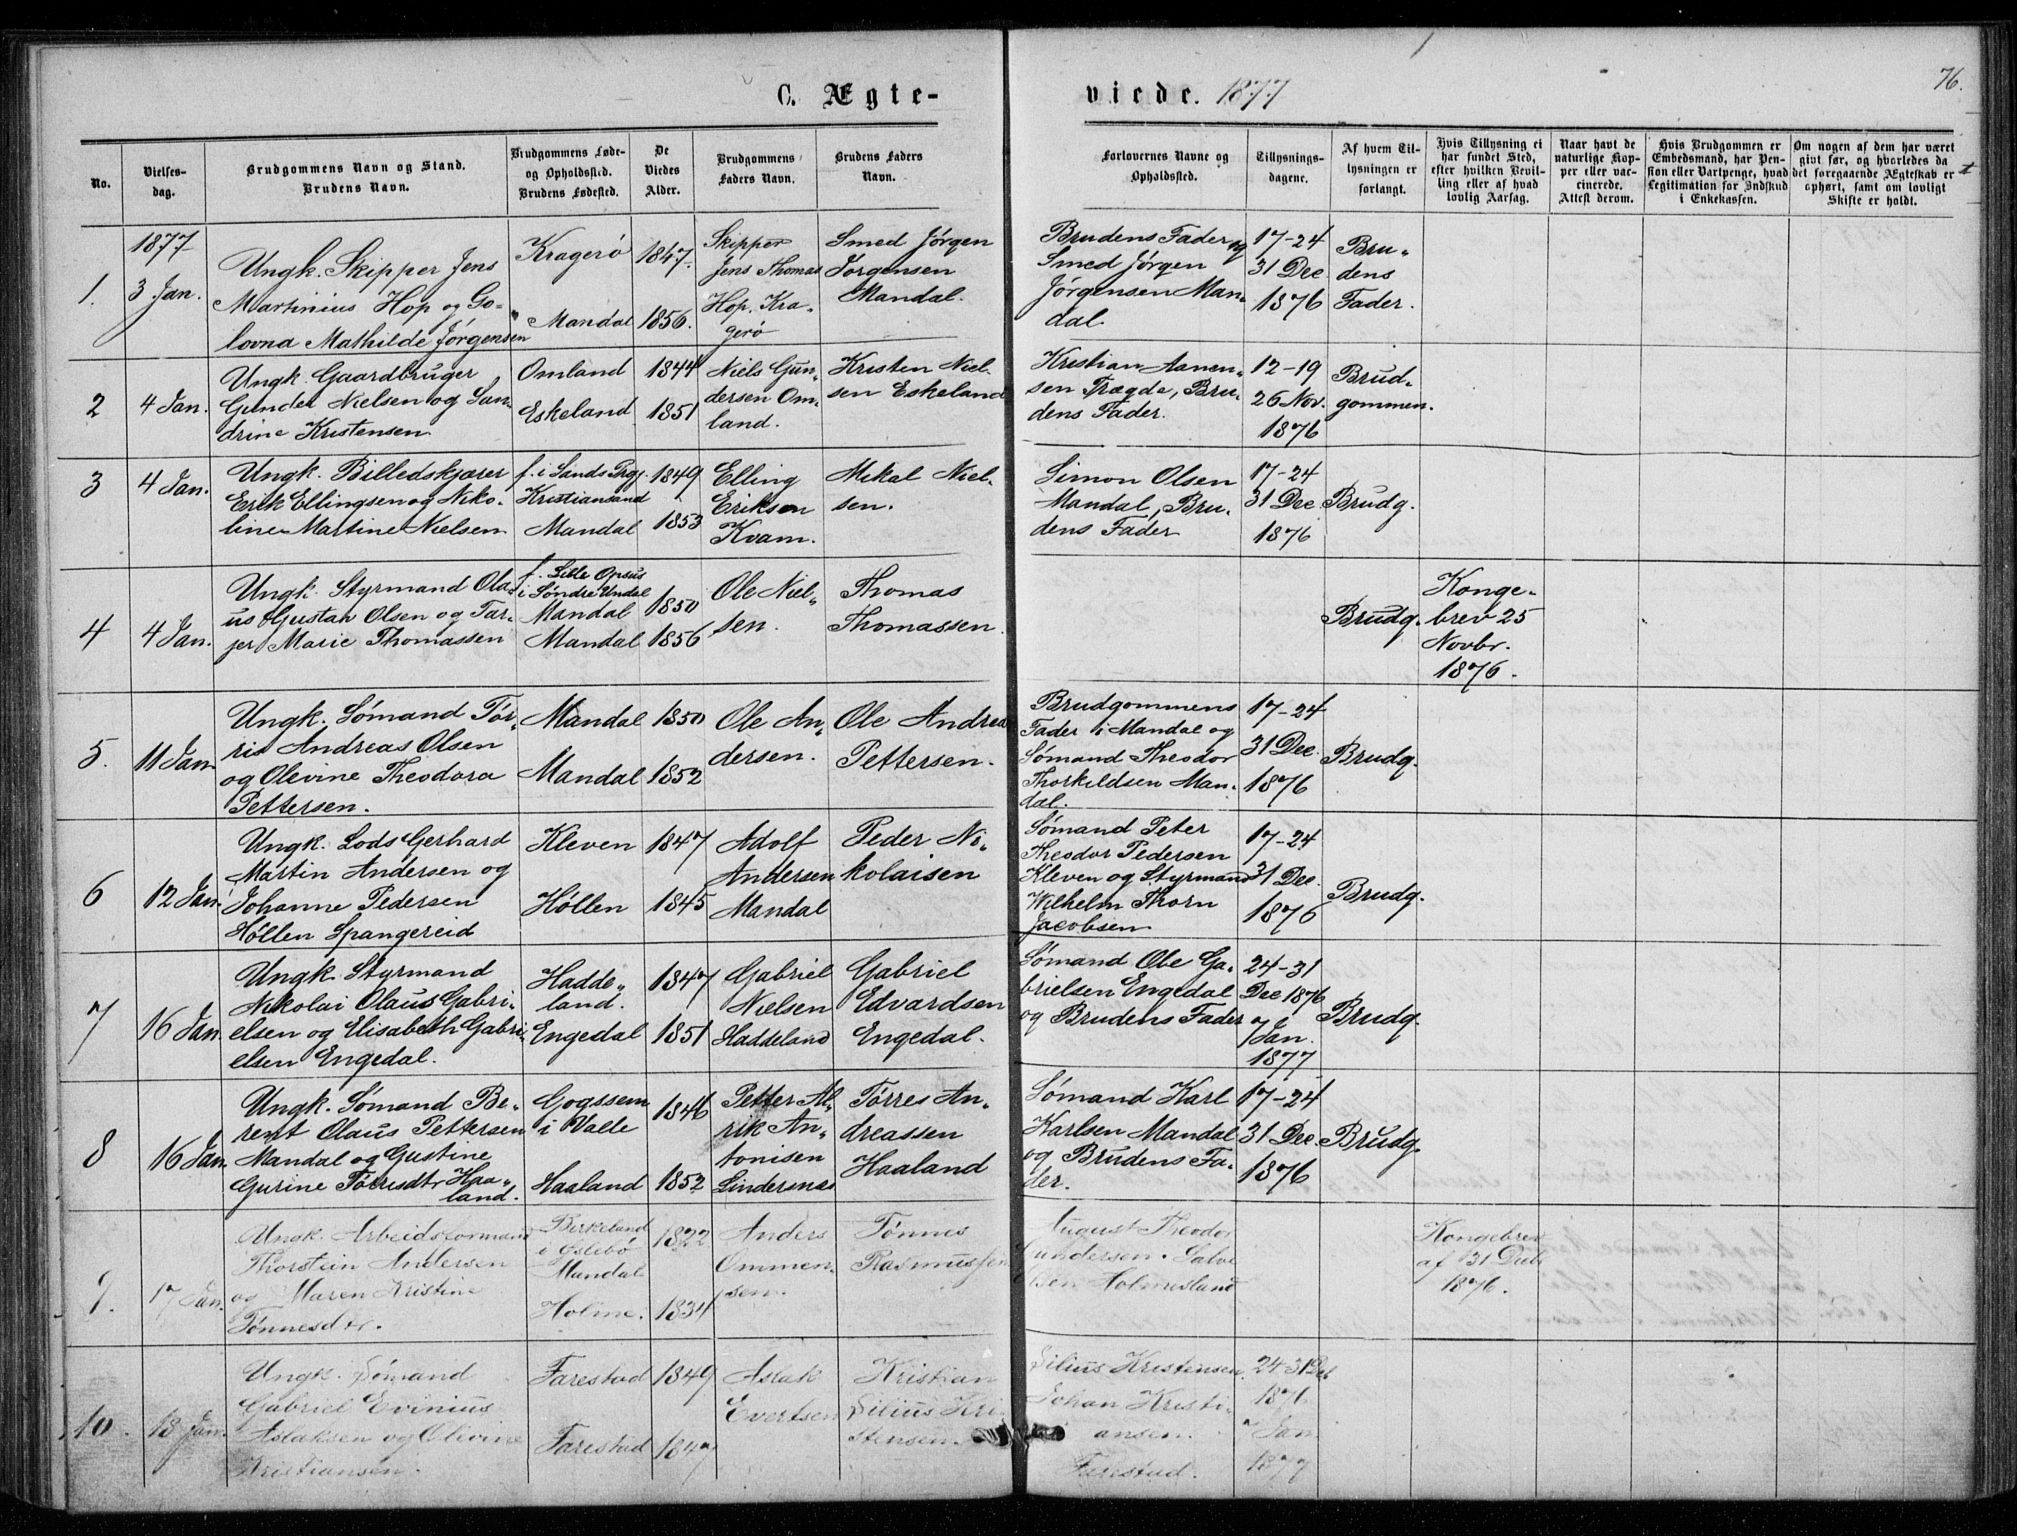 C. Ægte-
viede. 1877
76.
No.
Vielses-
dag.
Brudgommens Navn og Stand.
Brudens Navn.
Brudgommens Føde-
og Opholdssted.
Brudens Fødested.
De
Viedes
Alder.
Brudgommens
Faders Navn.
Brudens Faders
Navn.
Forlovernes Navne og
Opholdssted.
Tillysnings-
dagene.
Af hvem Til-
lysningen er
forlangt.
Hvis Tillysning ei
har fundet Sted,
efter hvilken Bevil-
ling eller af hvad
lovlig Aarsag.
Naar havt de
naturlige Kop-
per eller vac-
cinerede.
Attest derom.
Hvis Brudgommen er
Embedsmand, har Pen-
sion eller Vartpenge, hvad
Legitimation for Indskud
i Enkekassen.
Om nogen af dem har været
givt før, og hvorledes da
det foregaaende Ægteskab er
ophørt, samt om lovligt
Skifte er holdt.
1877
1.
3 Jan.
Ungk. Skipper Jens
Martinius Hop og Go-
lovna Mathilde Jørgensen
Kragerö
Mandal
1847.
1856.
Skipper
Jens Thomas
Hop. Kra-
gerö
Smed Jørgen
Jørgensen
Mandal.
Brudens Fader
Smed Jørgen
Jørgensen Man-
dal.
17-24
31 Dec
1876
Bru-
dens
Fader.
2
4 Jan.
Ungk. Gaardbruger
Gunder Nielsen og San-
drine Kristensen
Omland
Eskeland
1844
1851
Niels Gun-
dersen Om-
land.
Kristen Niel-
sen Eskeland
Kristian Aanen-
sen Trægde, Bru-
dens Fader.
12-19
26 Nov.
1876
Brud-
gommen.
3
4 Jan.
Ungk. Billedskjærer
Erik Ellingsen og Niko-
line Martine Nielsen
f. i Sinds Prgj.
Kristiansand
Mandal
1849
1853
Elling
Eriksen
Kvam.
Mikal Niel-
sen.
Simon Olsen
Mandal, Bru-
dens Fader
17-24
31 Dec
1876
Brudg.
4
4 Jan.
Ungk. Styrmand Ola-
us Gustav Olsen og Tar-
jer Marie Thomassen
f. Lille Opsus
i Søndre Undal
Mandal
Mandal
1850
1856
Ole Niel-
sen.
Thomas
Thomassen.
Brudg.
Konge-
brev 25
Novbr.
1876.
5.
11 Jan.
Ungk. Sömand Tör-
ris Andreas Olsen
og Olevine Theodora
Pettersen.
Mandal
Mandal
1850
1852
Ole An-
dersen.
Ole Andreas
Pettersen.
Brudgommens
Fader i Mandal og
Sömand Theodor
Thorkildsen Man-
dal.
17-24
31 Dec.
1876
Brudg.
6
12 Jan.
Ungk. Lods Gerhard
Martin Andersen og
Johanne Pedersen
Höllen Spangereid
Kleven
Höllen
1847
1845
Adolf
Andersen
Mandal
Peder Ni-
kolaisen
Sömand Peter
Theodor Pedersen
Kleven og Styrmand
Wilhelm Thorn
Jacobsen
17-24
31 Dec.
1876
Brudg.
7
16 Jan.
Ungk. Styrmand
Nikolai Olaus Gabri-
elsen og Elisabeth Gabri-
elsen Engedal.
Hadde-
land.
Engedal
1847
1851
Gabriel
Nielsen
Haddeland
Gabriel
Edvardsen
Engedal.
Sömand Obe Ga-
brielsen Engedal
og Brudens Fader
24-31
Dec 1876
7 Jan.
1877
Brudg.
8
16 Jan
Ungk. Sömand Be-
rent Olaus Pettersen
Mandal og Gustine
Gurine Törresdtr Haa-
land.
Gogssem
i Valle
Haaland
1846
1852
Petter Al-
rik An-
tonisen
Lindesnæs
Törres An-
dreassen
Haaland
Sömand Karl
Karlsen Mandal
og Brudens Fa-
der.
17-24
31 Dec.
1876
Brudg.
9.
17 Jan.
Ungk. Arbeidsformand
Thorstein Andersen
og Maren Kristine
Tönnesdtr.
Birkeland
i Øslebö
Mandal
Holme.
1822
1834
Anders
Ommen-
sen.
Tönnes
Rasmussen
August Theodor
Gundersen. Salve
Olsen Holmesland
Kongebrev
af 31 Decbr
1876.
10.
18 Jan.
Ungk. Sömand
Gabriel Evinius
Aslaksen og Olivine
Kristiansen.
Farestad
Farestad
1849
1847
Aslak
Evertsen
Kristian
Silius Kri-
stensen.
Silius Kristensen,
Johan Kristi-
ansen.
Farestad.
24 31 Dec
1876
7 Jan
1877